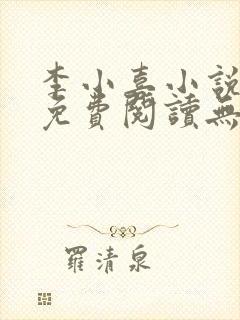 李小嘉小說
免費閱讀無
羅清泉